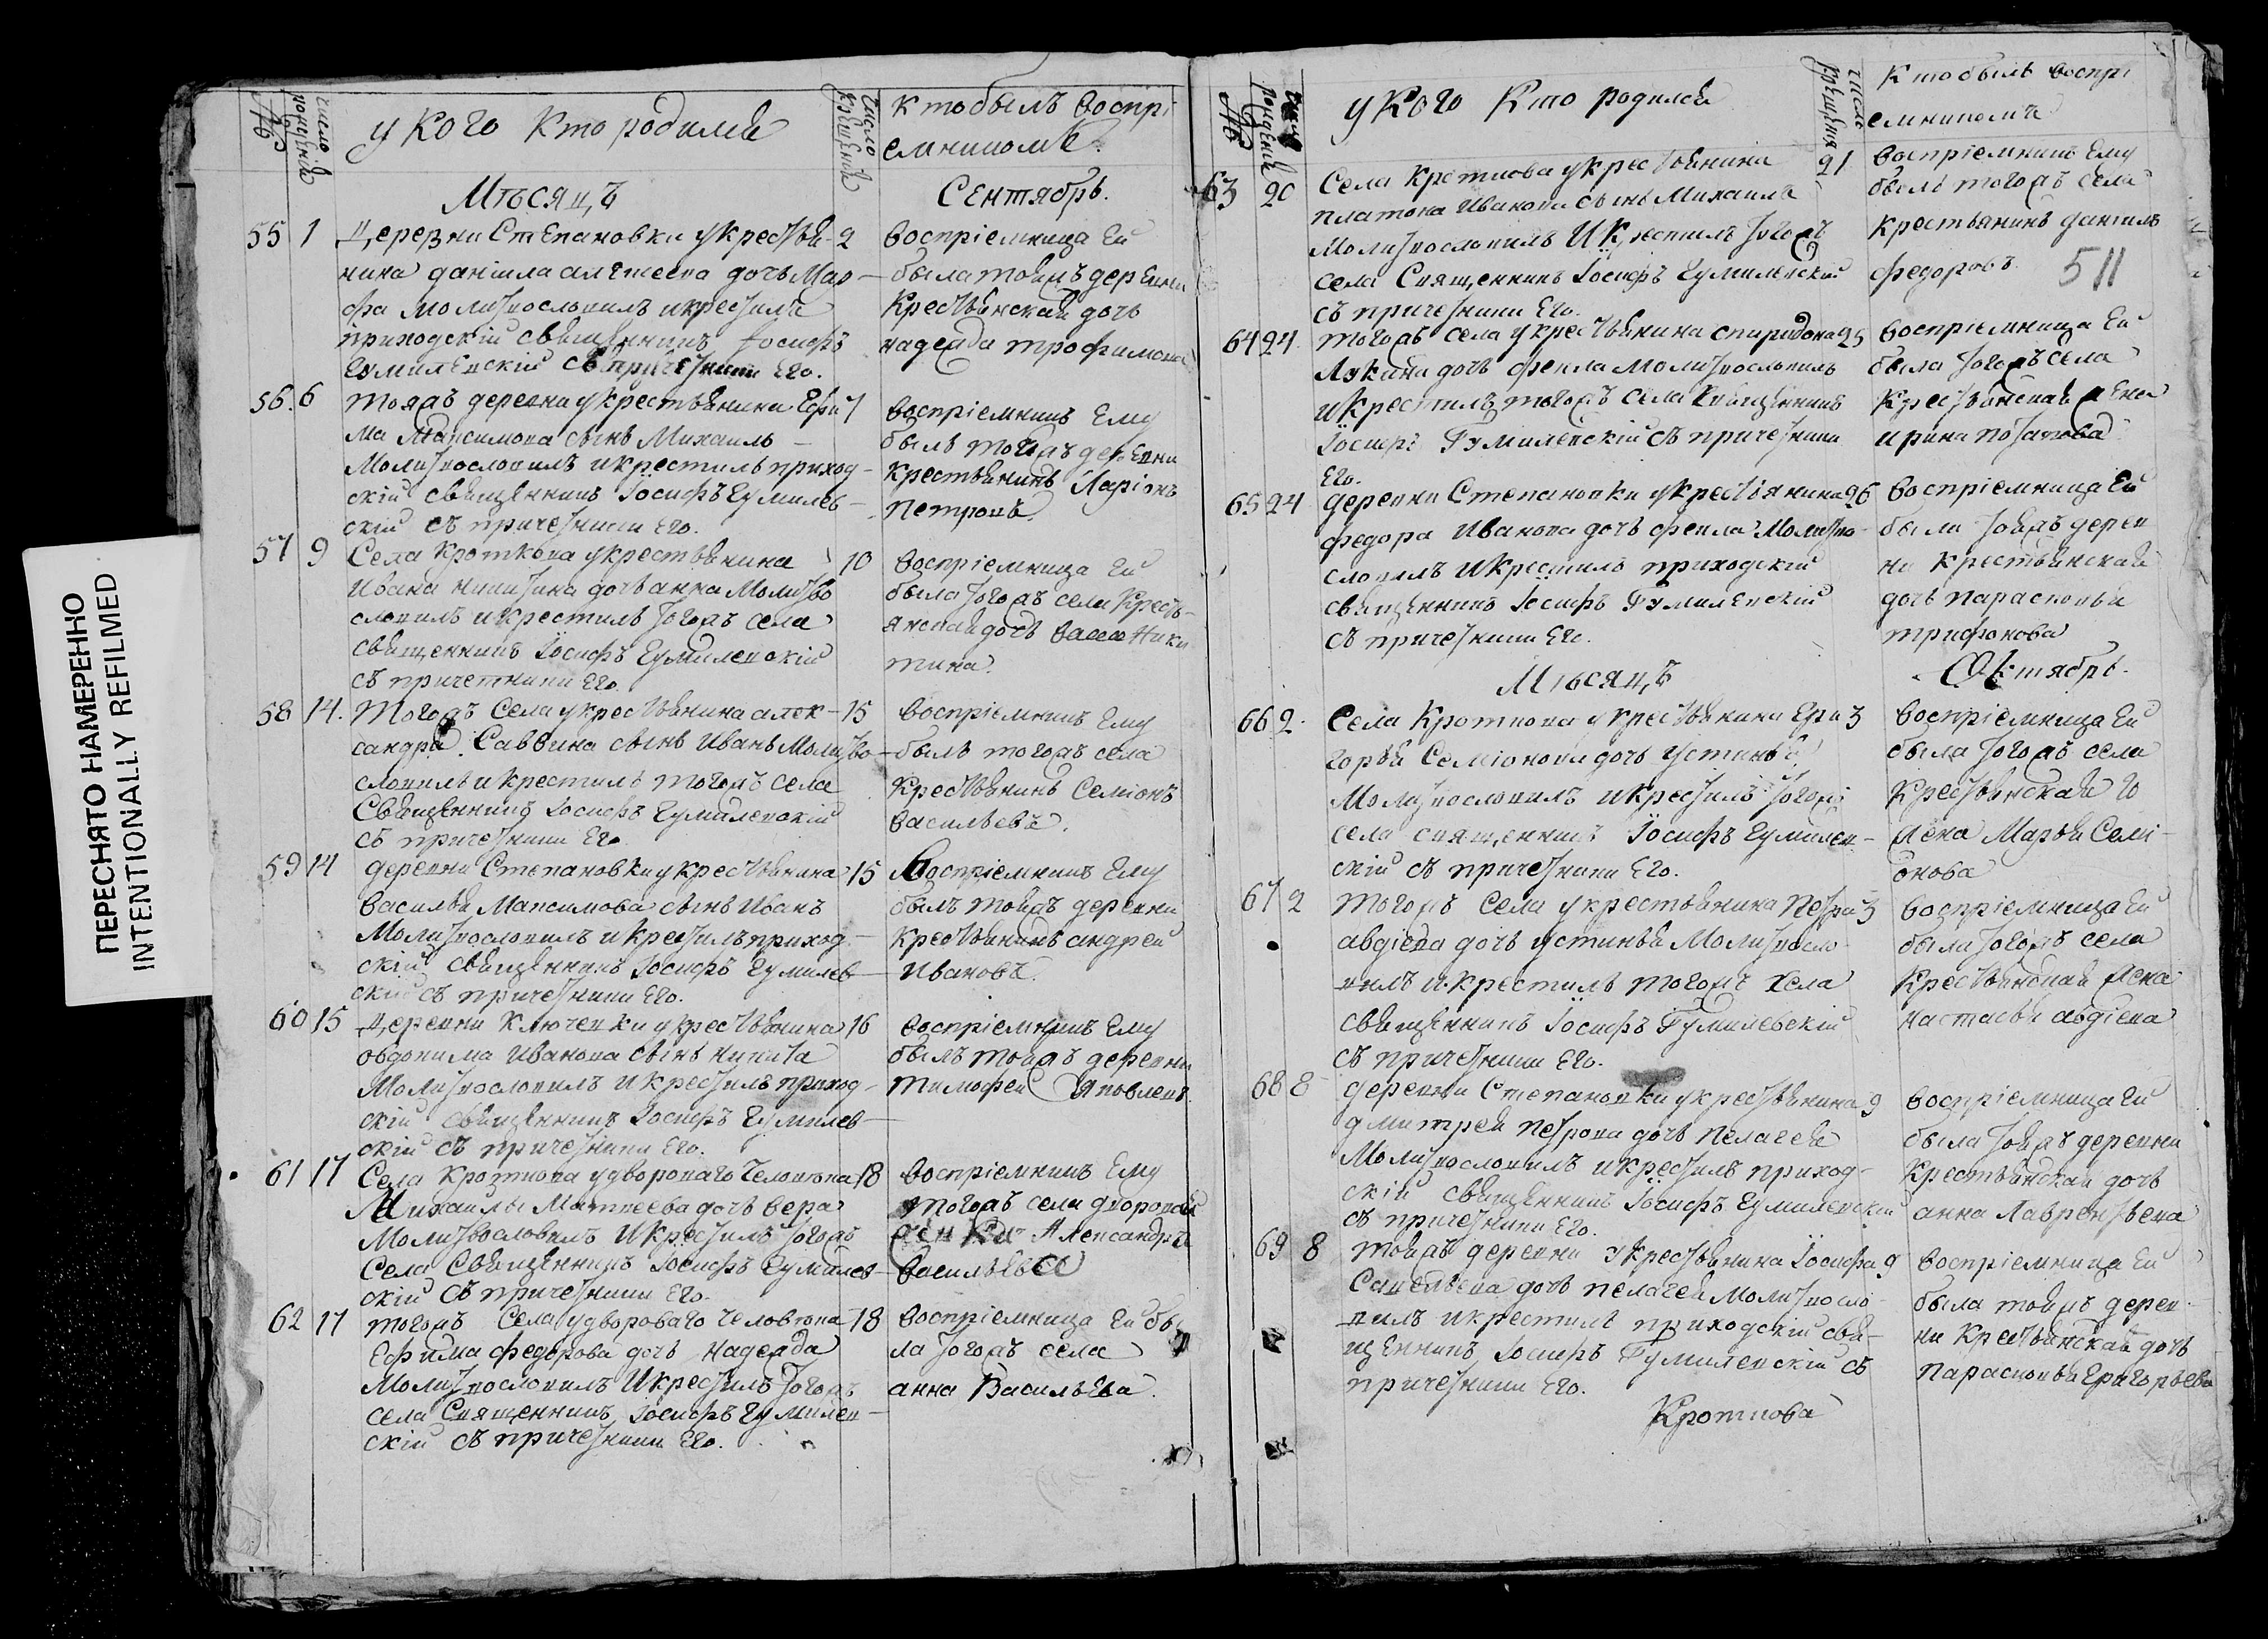 ПЕРЕСНЯТО НАМЕРЕННО
INTENTIONALLY REFILMED
№
число рожденій
у Кого Кто родился
число крещеній
Кто былъ воспрі
емникомъ
Мѣсяцъ
Сентябрь.
55 1 Деревни Степановки у крестья- 2
нина даніила алексеева дочь Мар-
фа молитвословилъ и крестилъ
приходскій священникъ Іосифъ
Гумилевскій съ причетники Его.
воспріемница Ей
была тояжъ деревни
Крестьянская дочь
надежда трофимова
56. 6 тояжъ деревни у крестьянина Ефи 7
ма Максимова сынъ Михаилъ
Молитвословилъ и крестилъ приход-
скій священникъ Іосифъ Гумилев-
скій съ причетники Его.
воспріемникъ Ему
былъ тояжъ деревни
крестьянинъ Ларіонъ
Петровъ.
57 9 Села Кроткова у крестьянина 10
Ивана никитина дочь анна Молитво
словилъ и крестилъ тогожъ села
священникъ Іосифъ Гумилевскій
съ причетники Его.
воспріемница Ей
была тогожъ села Кресть-
янская дочь Ники
тина.
58 14. Тогожъ Села у крестьянина алек- 15
сандра Саввина сынъ Иванъ Молитво-
словилъ и крестилъ тогожъ села
Священникъ Іосифъ Гумилевскій
съ причетники Его
воспріемникъ Ему
былъ тогожъ села
Крестьянинъ Семіонъ
васильевъ.
59 14 деревни Степановки у крестьянина 15
василья Максимова сынъ Иванъ
Молитвословилъ и крестилъ приход-
скій священникъ Іосифъ Гумилев-
скій съ причетники Его.
Воспріемникъ Ему
былъ тояжъ деревни
Крестьянинъ андрей
Ивановъ.
60 15 Деревни Ключевки у крестьянина 16
овдокима Иванова сынъ никита
Молитвословилъ и крестилъ приход-
скій священникъ Іосифъ Гумилев-
скій съ причетники Его.
воспріемникъ Ему
былъ тояжъ деревни
тимофей Яковлевъ.
61 17 Села Кроткова у двороваго Человѣка 18
Михаилы Матвеева дочь вера
Молитвословилъ и крестилъ тогожъ
Села Священникъ Іосифъ Гумилев-
скій съ причетники Его.
воспріемникъ Ему
тогожъ села дворовой
Александръ
васильевъ
62 17 тогожъ Села у двороваго человѣка 18
Ефима федорова дочь надежда
Молитвословилъ и крестилъ тогожъ
села Священникъ Іосифъ Гумилев-
скій съ причетники Его.
воспріемница Ей бы
ла тогожъ села
анна Васильева.
№
число рожденій
у Кого Кто родился
число крещенія
Кто былъ воспрі
емникомъ
63 20 Села Кроткова у крестьянина 21
платона Иванова сынъ Михаилъ
Молитвословилъ и Крестилъ тогожъ
села Священникъ Іосифъ Гумилевскій
съ причетники Его.
воспріемникъ Ему
былъ тогожъ села
крестьянинъ даніилъ
федоровъ.
511
64 24. тогожъ села у крестьянина спиридона 25
Лукина дочь фекла Молитвословилъ
и Крестилъ тогожъ села Священникъ
Іосифъ Гумилевскій съ причетники
Его.
воспріемница Ей
была тогожъ села
Крестьянская жена
ирина потапова
65 24 деревни Степановки у крестьянина 26
федора Иванова дочь фекла Молитво-
словилъ и Крестилъ приходскій
священникъ Іосифъ Гумилевскій
съ причетники Его.
воспріемница Ей
была тояжъ дерев
ни Крестьянская
дочь парасковья
трифонова
Мѣсяцъ
Октябрь.
66 2. Села Кроткова у крестьянина Гри 3
горья Семіонова дочь устинья
Молитвословилъ и крестилъ тогожъ
села священникъ Іосифъ Гумилев-
скій съ причетники Его.
воспріемница Ей
была тогожъ села
Крестьянская
жена Марья Семі-
онова
67 2 тогожъ Села у крестьянина Петра 3
авдіева дочь устинья Молитвосло-
вилъ и крестилъ тогожъ села
священникъ Іосифъ Гумилевскій
съ причетники Его.
воспріемница Ей
была тогожъ села
Крестьянская жена
настасья авдіева
68 8 деревни Степановки у крестьянина 9
дмитрея петрова дочь пелагея
Молитвословилъ и крестилъ приход-
скій священникъ Іосифъ Гумилевскій
съ причетники Его.
воспріемница Ей
была тояжъ деревни
Крестьянская дочь
анна Лаврентьева
69 8 тояжъ деревни у крестьянина Іосифа 9
Савельева дочь пелагея Молитвосло-
вилъ и крестилъ приходскій свя-
щенникъ Іосифъ Гумилевскій съ
причетники Его.
воспріемница Ей
была тояжъ дерев-
ни Крестьянская дочь
парасковья Григорьева
Кроткова